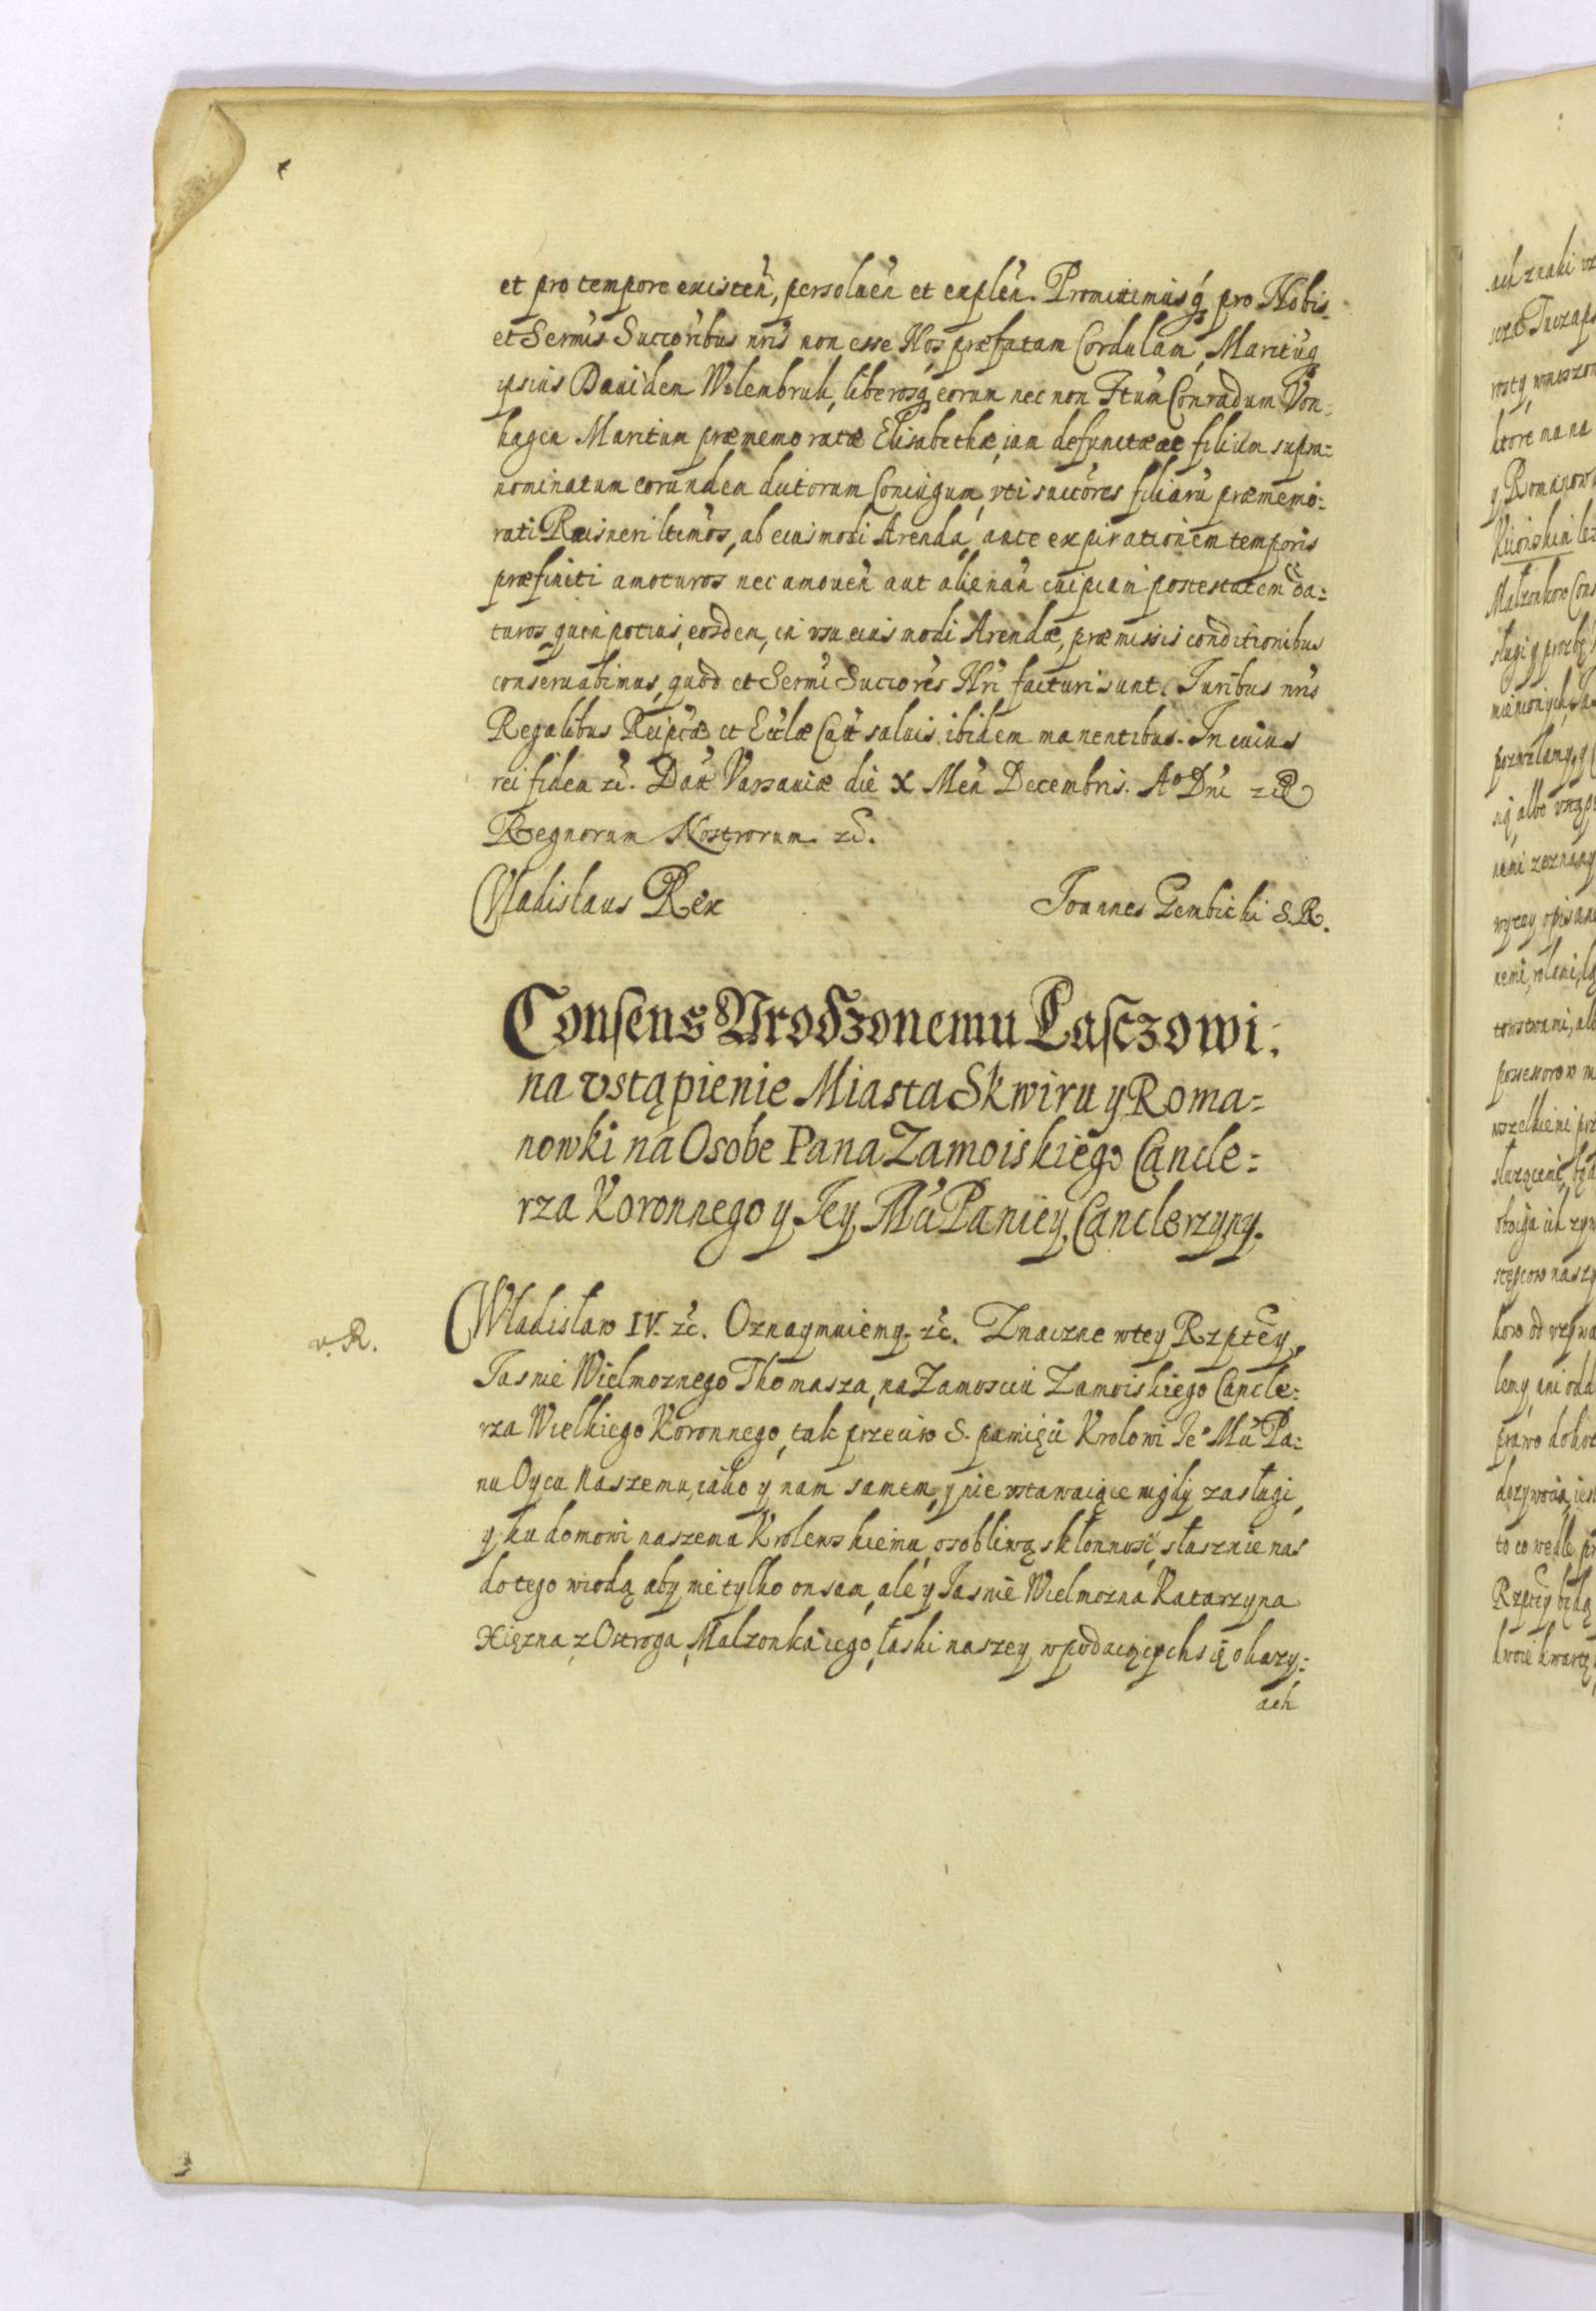 et pro tempore existeñ, persolueñ et expleñ. Promittimusq̃ pro Nobis
et Sermis Succoribus nris non esse Nos præfatam Cordulam, Maritũq̃
ipsius Dauidem Wolembruk, liberosq̃ eorum nec non Ittum Conradum Von-
hagen Maritum præmemoratæ Elisabethæ, iam defunctæ ac filium supra=
nominatum eorundem dictorum Coniugum, vti succores filiarũ præmemo=
rati Reisneri ltimos, ab eiusmodi Arenda, ante expirationem temporis
præfiniti amoturos nec amoueñ aut alienañ cuipiam potestatem da=
turos, quin potius, eosdem, in vsu eiusmodi Arendæ, præmissis conditionibus
conseruabimus, quod et Sermi Succores Nri facturi sunt. Iuribus nris
Regalibus Reipcæ et Ecclæ Catt saluis ibidem manentibus. In cuius
rei fidem zc. Dat Varsauiæ die X Meñ Decembris. Ao Dni zc
Regnorum Nostrorum zc.
Vladislaus Rex
Ioannes Gembicki S.R.
Consens Vrodzonemu Łasczowi.
na vstąpienie Miasta Skwiru y Roma=
nowki na Osobe Pana Zamoiskiego Cancle=
rza Koronnego y Iey Mci Paniey Canclerzyny.
v. R.
Władisław IV. zc. Oznaymuiemy. zc. Znaczne wtey Rzptey,
Iasnie Wielmoznego Thomasza, na Zamosciu Zamoiskiego Cancle=
rza Wielkiego Koronnego, tak przeciw S. pamięci Krolowi Ie° Mci Pa=
nu Oycu Naszemu, iako y nam samem, y nie vstawaiące nigdy zasługi
y ku domowi naszemu Krolewskiemu, osobliwą skłonność, słusznie nas
do tego wiodą aby nie tylko on sam, ale y Iasnie Wielmozna Katarzyna
Xięzna z Ostroga, Malzonka iego, łaski naszey w podaiących się okazy=
ach
ach znaki
Romanow
Kiiowskim
Malzonkow
pozwalamy, y
się albo
nemi zeznany
wyzey opisane
possessorow
wszelkiemi
kow od
lemy, ani
prawo
to co wedle
Rzptey będą